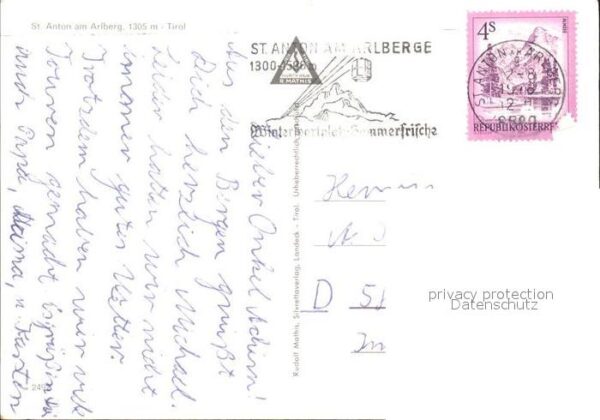 St. Anton am Arlberg, 1305 m - Tirol
ST. ANTON AM ARLBERGE
1300-
R. MATHIS
Wintersportplatz-Sommerfrische
4S
REPUBLIK ÖSTERR
ST. ANTON AM ARL
12
6580
Lieber Onkel Achim!
Aus den Bergen grüßt
Dich herzlich Michael.
Leider hatten wir nicht
immer gutes Wetter.
Trotzdem haben wir viele
Touren gemacht
auch Papa, Mama, u. Karsten
Rudolf Mathis, Silvrettaverlag, Landeck - Tirol. Urheberrechtlich
Herrn
D 51
privacy protection
Datenschutz